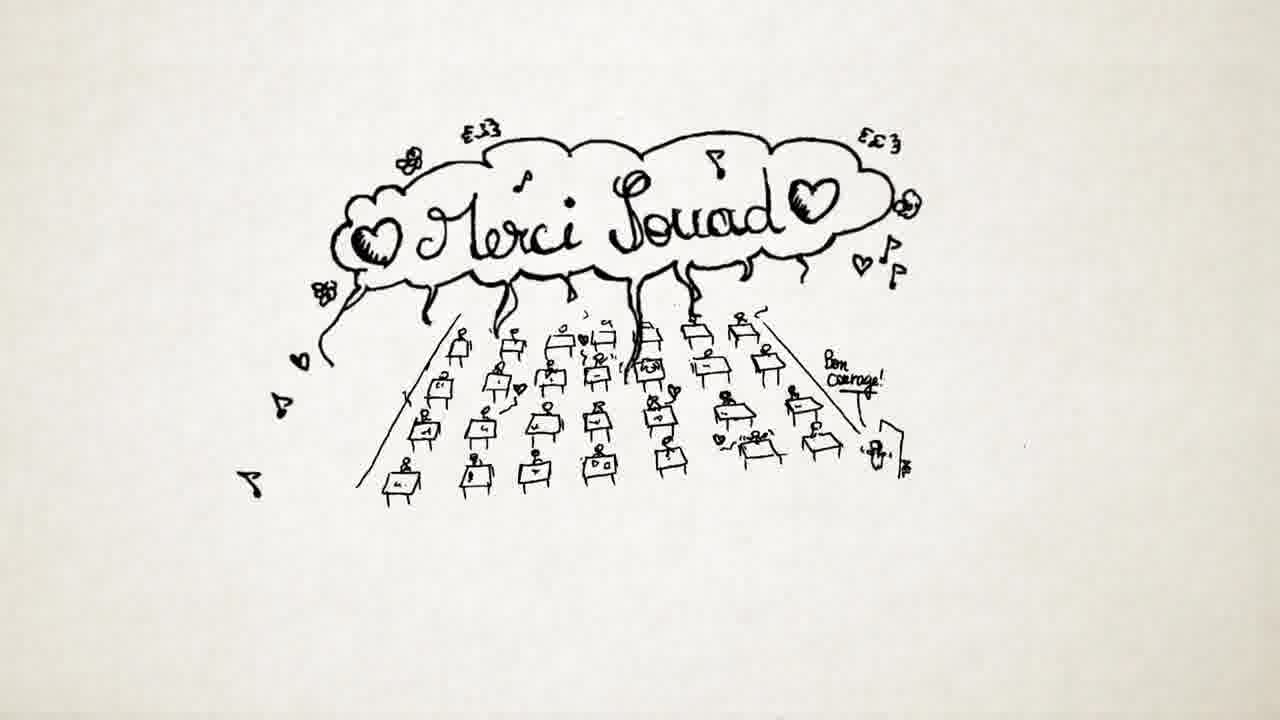 Merci Souad
Bon
courage!